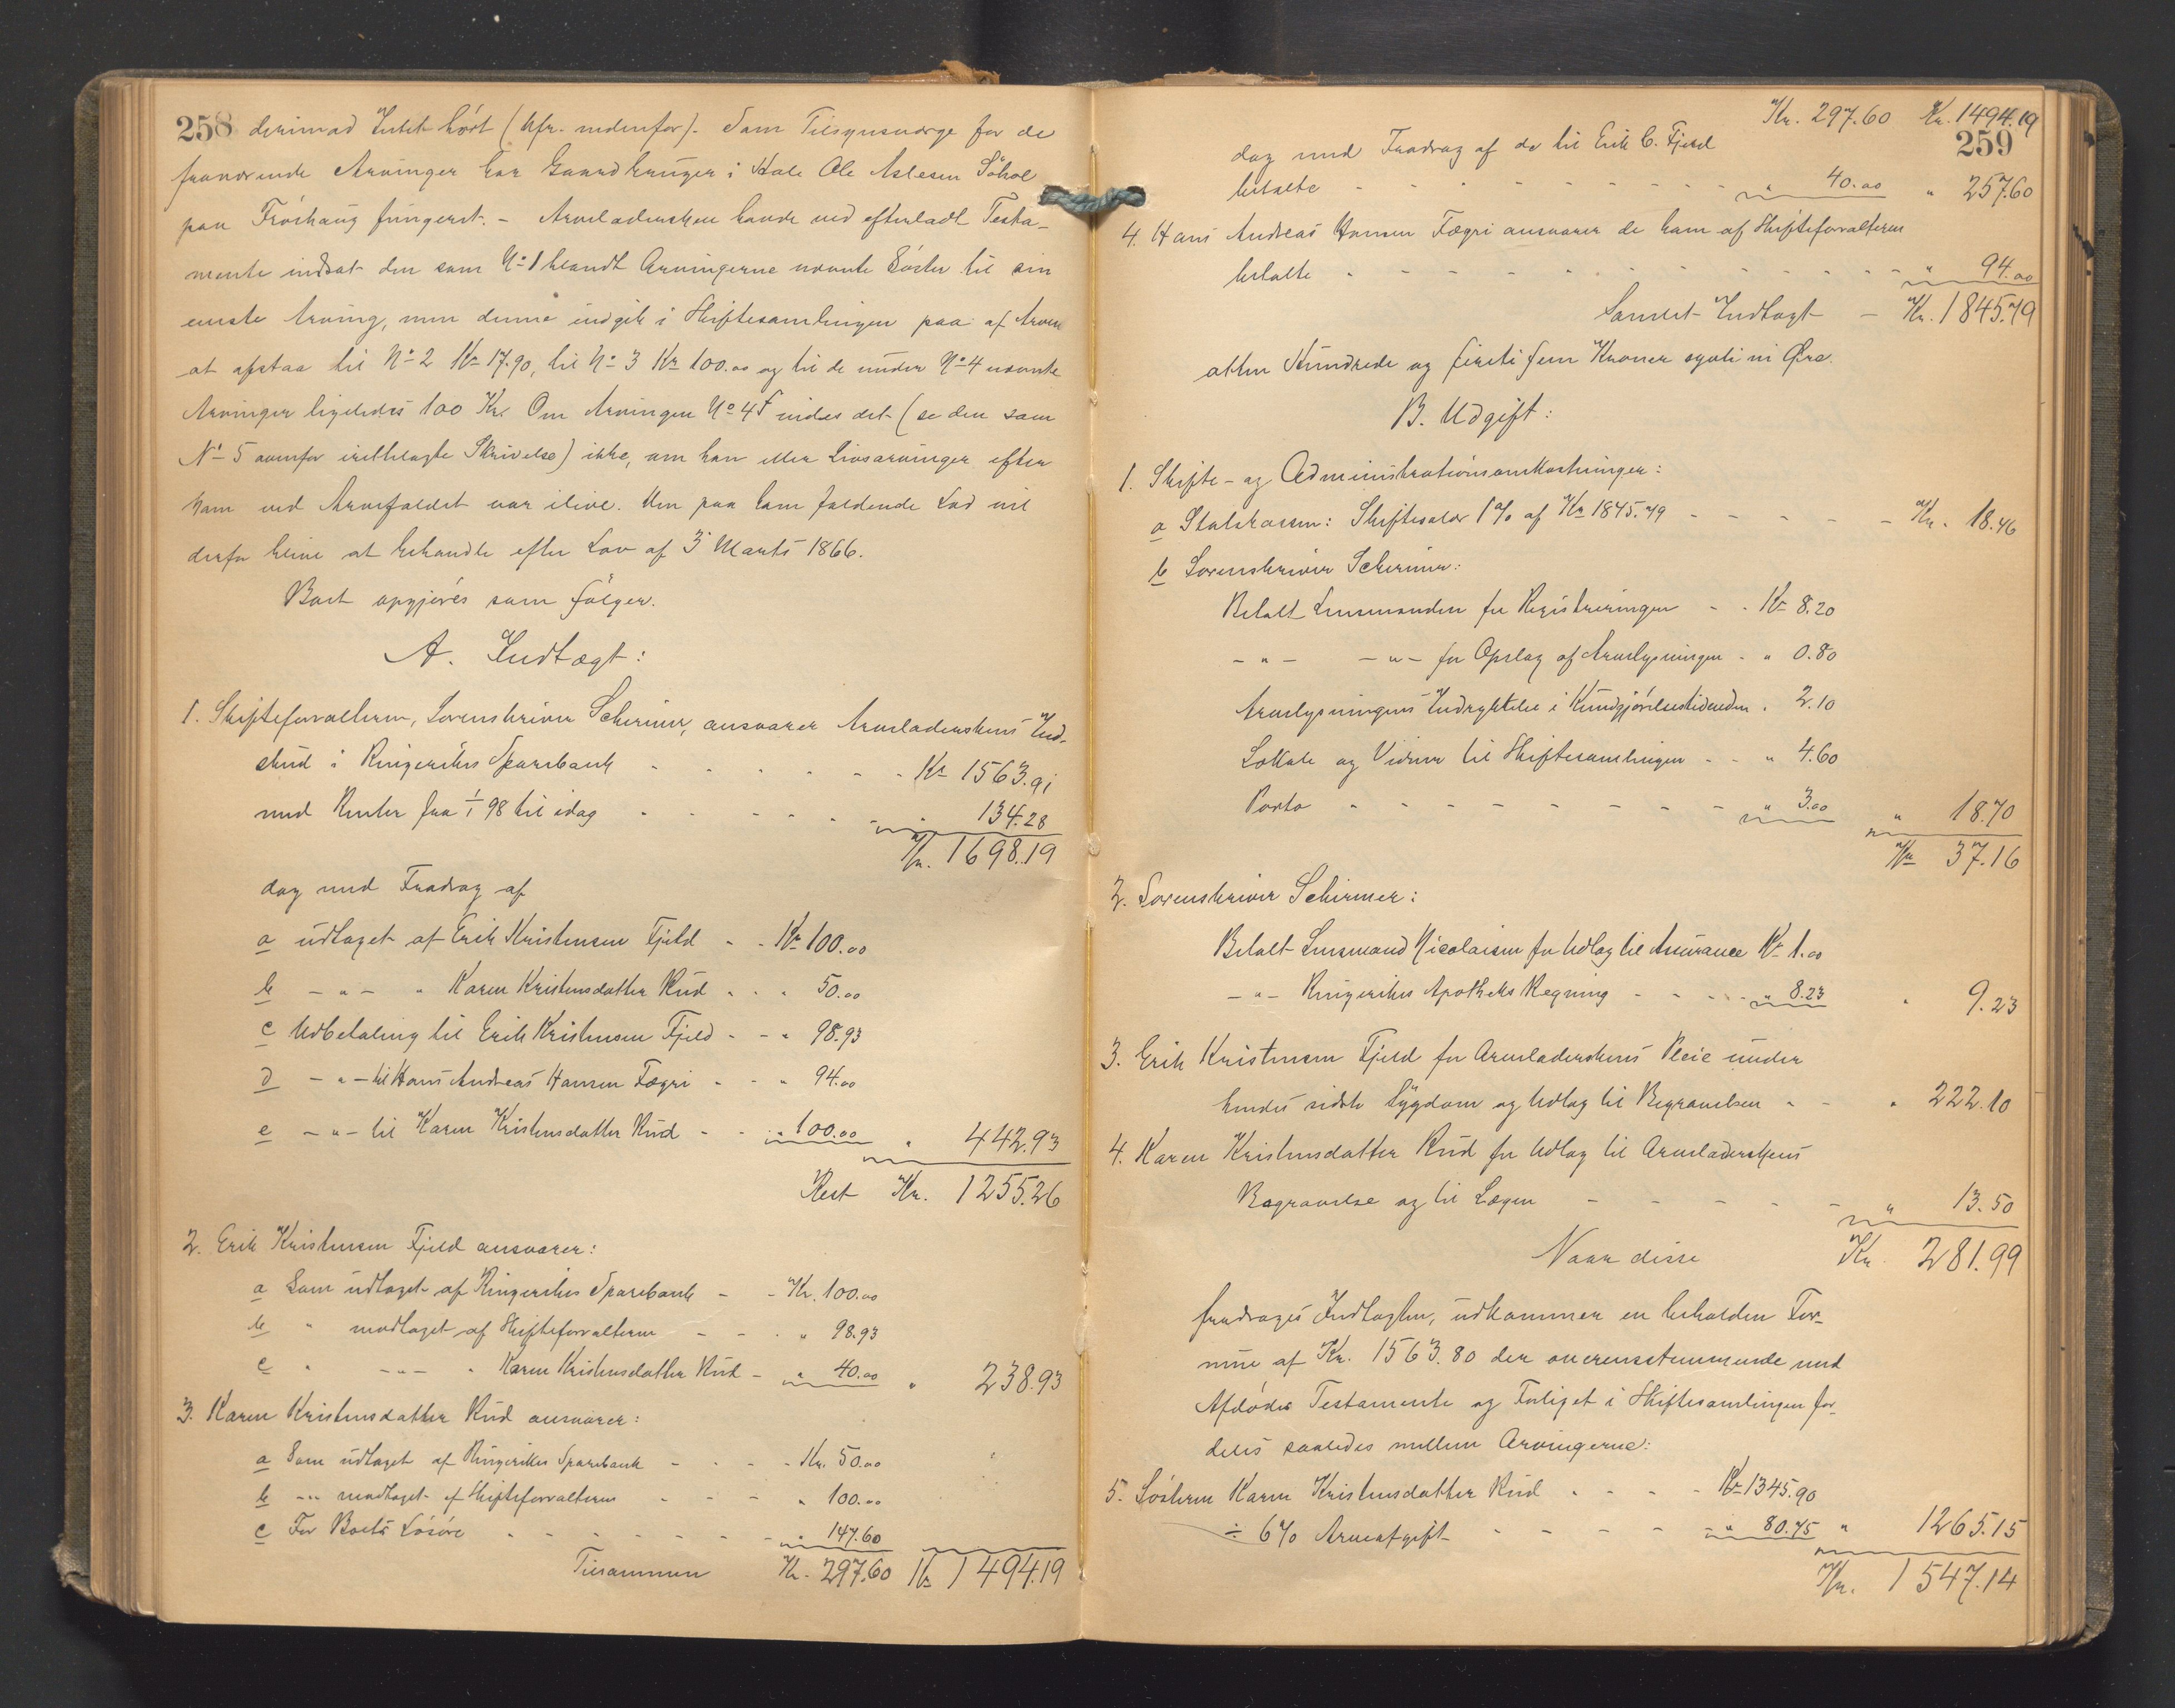 258 derimod Intet hört (kfr. nedenfor). Som Tilsynsværge for de
fraværende Arvinger har Gaardbruger i Hole Ole Aslesen Söhol
paa Fröshaug fungeret. – Arveladersken havde ved efterladt Testa-
mente indsat den som No 1 blandt Arvingerne nævnte Söster til sin
eneste Arving, men denne indgik i Skiftesamlingen paa af Arven
at afstaa til No 2 Kr 17.90, til No 3 Kr 100.00 og til de under No 4 nævnte
Arvinger ligeledes 100 Kr. Om Arvingen No 4 F vides det (se den som
No 5 ovenfor irettelagte Skrivelse) ikke, om han eller Livsarvinger efter
ham ved Arvefaldet var ilive. Den paa ham faldende Lod vil
derfor blive at behandle efter Lov af 3 Marts 1866.
Boet opgjöres som fölger.
A. Indtægt:
1. Skifteforvalteren, Sorenskriver Schirmer, ansvarer Arveladerskens Ind-
skud i Ringerikes Sparebank - - - Kr 1563.91
med Renter fra 1/1 98 til idag - - - " 134.28
Kr. 1698.19
dog med Fradrag af
a udtaget af Erik Kristensen Fjeld - - Kr 100.00
b - " - " Karen Kristensdatter Rud - - " 50.00
c Udbetaling til Erik Kristensen Fjeld - - " 98.93
d - " - til Hans Andreas Hansen Fægri - - " 94.00
e - " - til Karen Kristensdatter Rud - - " 100.00 " 442.93
Rest Kr. 1255.26
2. Erik Kristensen Fjeld ansvarer:
a Som udtaget af Ringerikes Sparebank - - Kr. 100.00
b " modtaget af Skifteforvalteren - - " 98.93
c " - " - " Karen Kristensdatter Rud - " 40.00 " 238.93
3. Karen Kristensdatter Rud ansvarer:
a Som udtaget af Ringerikes Sparebank - - - Kr. 50.00
b - " - modtaget af Skifteforvalteren - - - " 100.00
c For Boets Lösöre - - - " 147.60
Tilsammen Kr. 297.60 Kr 1494.19
Kr. 297.60 Kr. 1494.19
259
dog med Fradrag af de til Erik C. Fjeld
betalte - - - " 40.00 " 257.60
4. Hans Andreas Hansen Fægri ansvarer de ham af Skifteforvalteren
betalte - - - " 94.00
Samlet Indtægt - Kr. 1845.79
atten Hundrede og firetifem Kroner sytti ni Øre.
B. Udgift:
1. Skifte- og Administrationsomkostninger:
a Statskassen: Skiftesalær 1 % af Kr 1845.79 - - - Kr. 18.46
b Sorenskriver Schirmer:
Betalt Lensmanden for Registreringen - - Kr 8.20
- " - - " - for Opslag af Arvelysningen - " 0.80
Arvelysningens Indrykkelse i Kundgjörelsestidenden " 2.10
Lokale og Vidner til Skiftesamlingen - - " 4.60
Porto - - - " 3.00 " 18.70
Kr 37.16
2. Sorenskriver Schirmer:
Betalt Lensmand Nicolaisen for Udlæg til Assurance Kr 1.00
- " - Ringerikes Apotheks Regning - - - " 8.23 " 9.23
3. Erik Kristensen Fjeld for Arveladerskens Pleie under
hendes sidste Sygdom og Udlæg til Begravelsen - - " 222.10
4. Karen Kristensdatter Rud for Udlæg til Arveladerskens
Begravelse og til Lægen - - - " 13.50
Naar disse Kr. 281.99
fradrages Indtægten, udkommer en beholden For-
mue af Kr. 1563.80 der overensstemmende med
Afdødes Testamente og Forliget i Skiftesamlingen for-
deles saaledes mellem Arvingerne:
5. Sösteren Karen Kristensdatter Rud - - - Kr 1345.90
÷ 6 % Arveafgift - - - " 80.75 " 1265.15
Kr. 1547.14